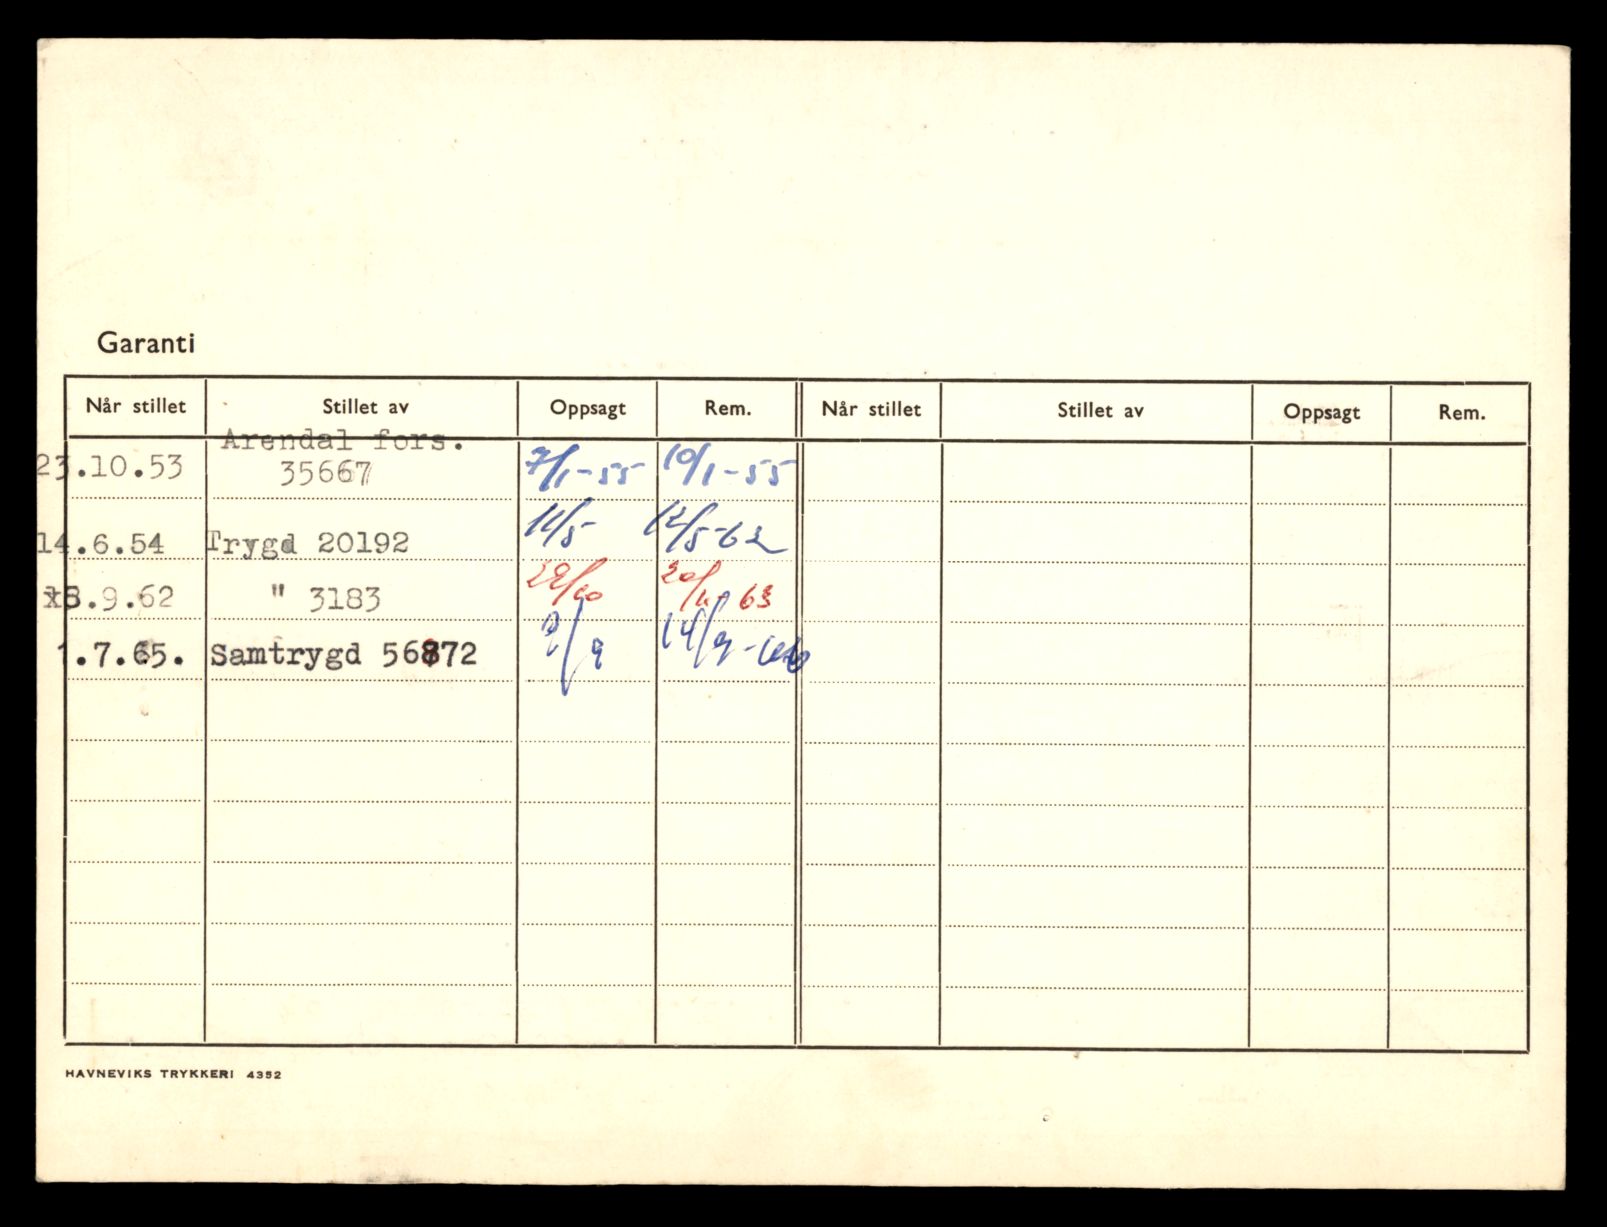 Garanti
Når stillet Stillet av Oppsagt Rem. Når stillet Stillet av Oppsagt Rem.
Arendal fors.
23.10.53 35667 7/1-55 10/1-55
14.6.54 Trygd 20192 11/5- 12/5-62
18.9.62 " 3183 29/10 20/11-63
1.7.65. Samtrygd 56872 9/9 14/9-66
HAVNEVIKS TRYKKERI 4352